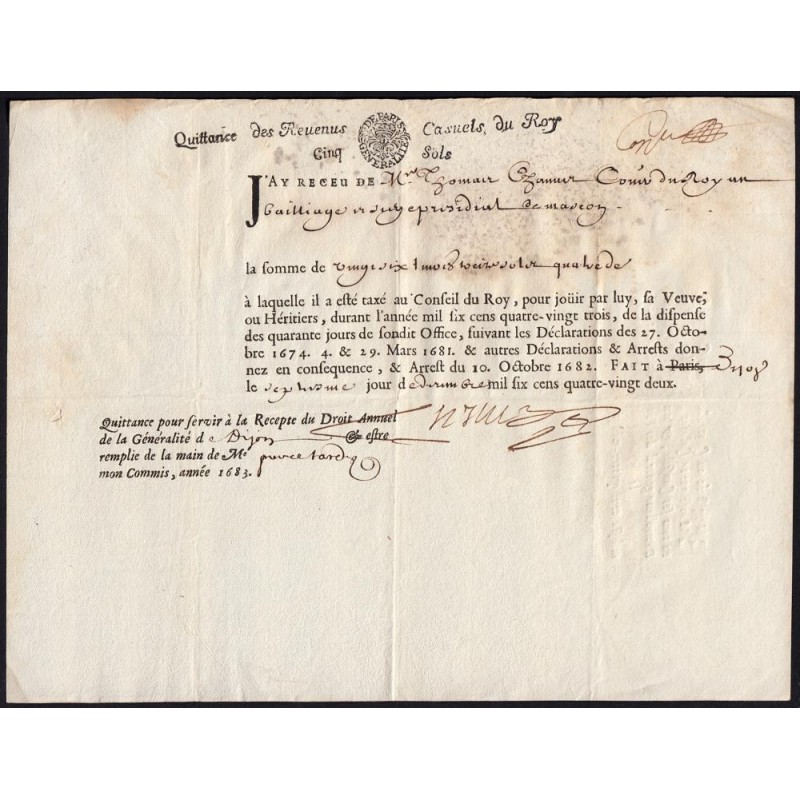 Quittance des Reuenus DE PARIS GENERALITÉ Casuels du Roy
Cinq Sols
J'AY RECEU DE Mre Thomas Chanur Coner du Roy au
bailliage et siege presidial de mascon
la somme de vingt six # trois solz quatre de
à laquelle il a esté taxé au Conseil du Roy, pour joüir par luy, sa Veuve,
ou Héritiers, durant l'année mil six cens quatre-vingt trois, de la dispense
des quarante jours de sondit Office, suivant les Déclarations des 27. Octo-
bre 1674. 4. & 29. Mars 1681. & autres Déclarations & Arrests don-
nez en consequence, & Arrest du 10. Octobre 1682. FAIT à Paris, Dijon
le septiesme jour de decembre mil six cens quatre-vingt deux.
Quittance pour servir à la Recepte du Droit Annuel
de la Généralité de Dijon & estre
remplie de la main de Me
mon Commis, année 1683.